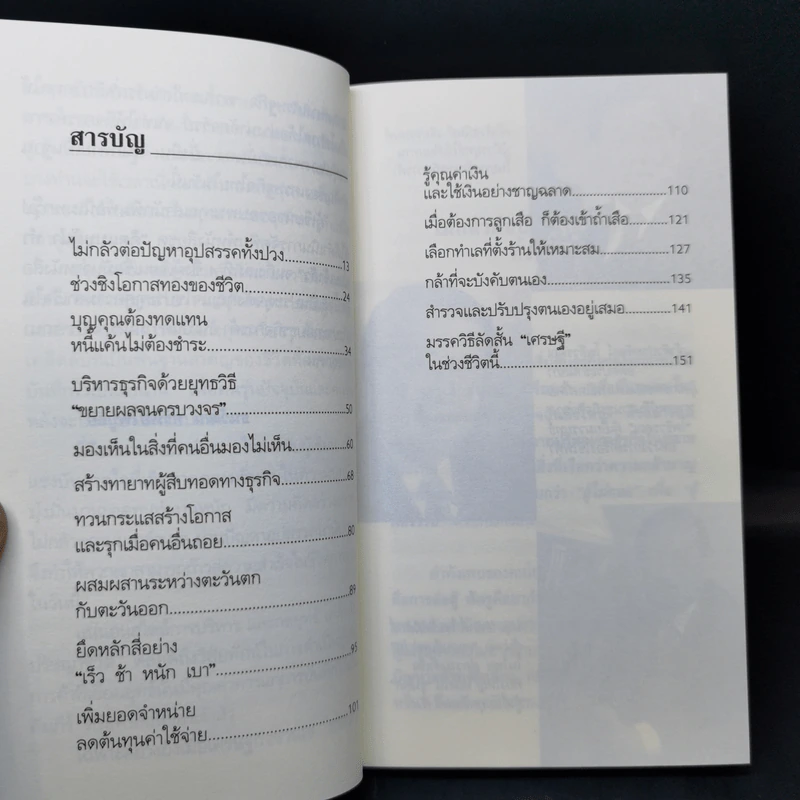 สารบัญ
ไม่กลัวต่อปัญหาอุปสรรคทั้งปวง.................13
ช่วงชิงโอกาสทองของชีวิต...............24
บุญคุณต้องทดแทน
หนี้แค้นไม่ต้องชำระ.....................34
บริหารธุรกิจด้วยยุทธวิธี
“ขยายผลจนครบวงจร”.....................50
มองเห็นในสิ่งที่คนอื่นมองไม่เห็น..........60
สร้างทายาทผู้สืบทอดทางธุรกิจ..........68
ทวนกระแสสร้างโอกาส
และรุกเมื่อคนอื่นถอย.....................80
ผสมผสานระหว่างตะวันตก
กับตะวันออก................................89
ยึดหลักสี่อย่าง
“เร็ว ช้า หนัก เบา”........................95
เพิ่มยอดจำหน่าย
ลดต้นทุนค่าใช้จ่าย........................101
รู้คุณค่าเงิน
และใช้เงินอย่างชาญฉลาด.......................110
เมื่อต้องการลูกเสือ ก็ต้องเข้าถ้ำเสือ..........121
เลือกทำเลที่ตั้งร้านให้เหมาะสม...............127
กล้าที่จะบังคับตนเอง............................135
สำรวจและปรับปรุงตนเองอยู่เสมอ...........141
มรรควิธีลัดสั้น “เศรษฐี”
ในช่วงชีวิตนี้........................................151